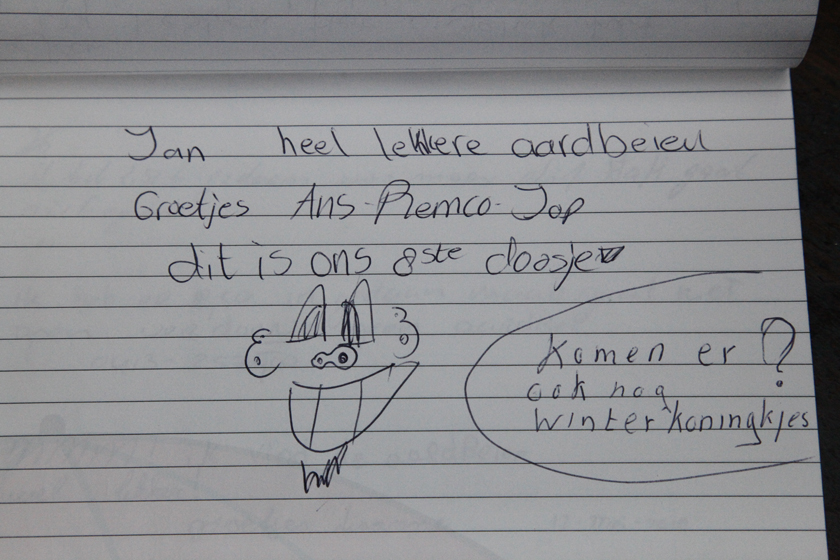 Jan heel lekkere aardbeien
Groetjes Ans-Remco-Jop
dit is ons 8ste doosje
Komen er ?
ook nog
winterkoningkjes